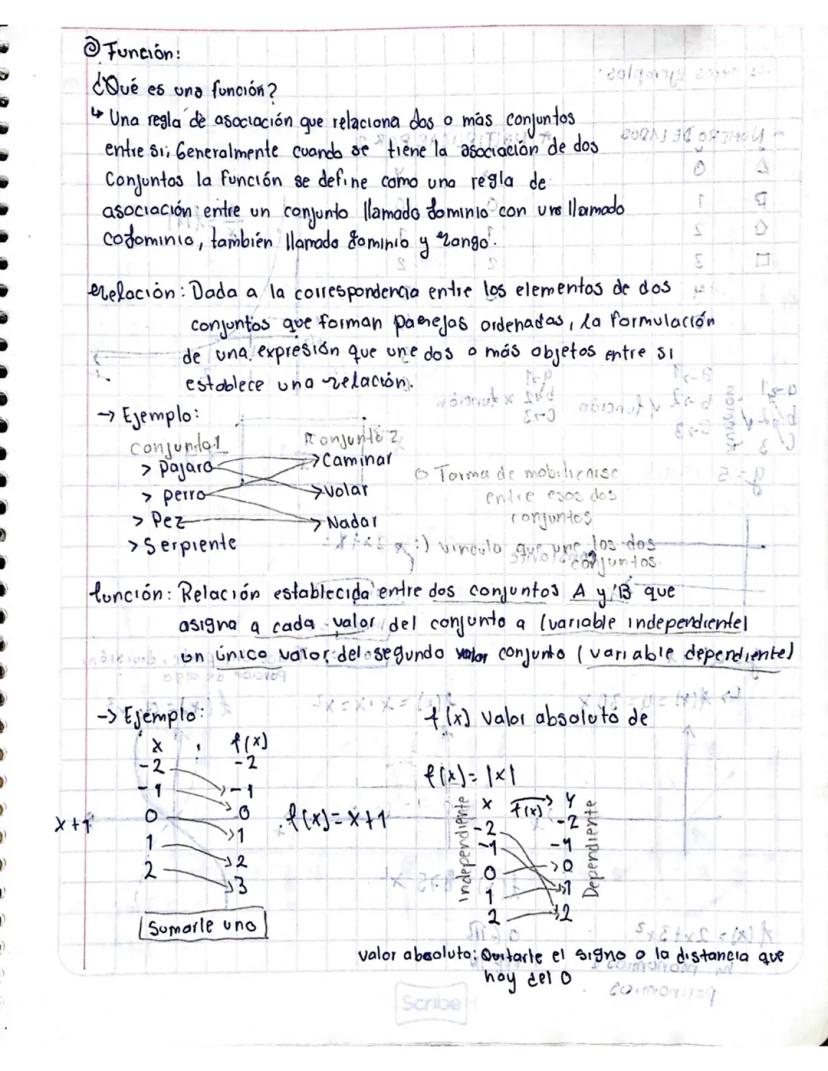 @ Función:
¿Qué es una función?
↳ Una regla de asociación que relaciona dos o más conjuntos
entre si; Generalmente cuando se tiene la asociación de dos
Conjuntos la Función se define como una regla de
asociación entre un conjunto llamado dominio con uno llamado
codominio, también llamado dominio y rango.
relación: Dada a la correspondencia entre los elementos de dos
conjuntos que forman parejas ordenadas, la formulación
de una expresión que une dos o más objetos entre si
establece una relación.
→ Ejemplo:
conjunto 1 conjunto 2
> Pajaro > Caminar
> perro > volar
> Pez > Nadar
> Serpiente
Forma de mobilizarse
entre esos dos
conjuntos
:) vinculo que une los dos
conjuntos.
función: Relación establecida entre dos conjuntos A y B que
asigna a cada valor del conjunto a (variable independiente)
un único valor del segundo valor conjunto (variable dependiente)
-> Ejemplo:
x f(x)
-2 -2
-1 -1
0 0
1 1
2 2
3
x+1
f(x)=x+1
Sumarle uno
f(x) valor absoluto de
f(x)=|x|
x f(x) y
-2 -2
-1 -1
0 0
1 1
2 2
Independiente
Dependiente
valor absoluto: Quitarle el signo o la distancia que
hay del 0
Scribe